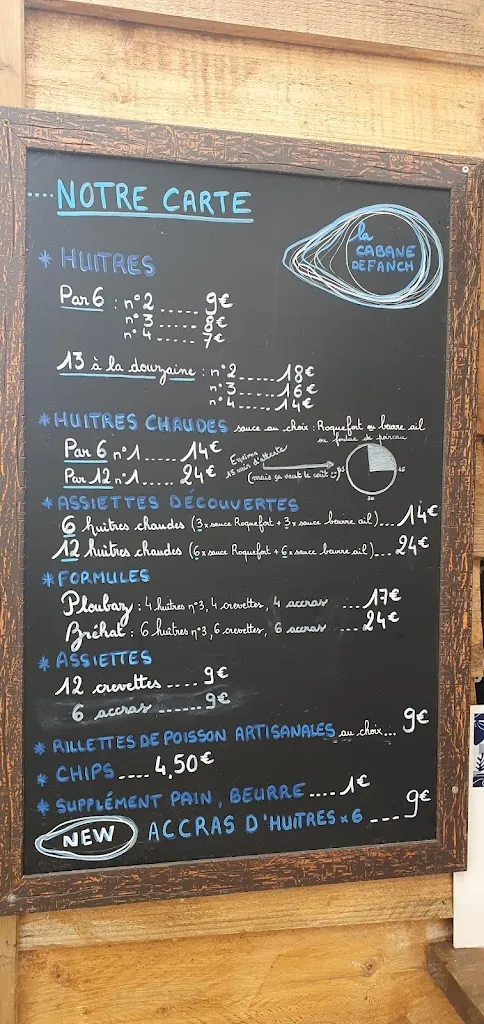 .... NOTRE CARTE
la
CABANE
DEFANCH
* HUITRES
Par 6 : n°2 ..... 9€
n°3 ..... 8€
n°4 ..... 7€
13 à la douzaine : n°2 ..... 18€
n°3 ..... 16€
n°4 ..... 14€
* HUITRES CHAUDES sauce au choix : Roquefort ou beurre ail
ou fondue de poireau
Par 6 n°1 ..... 14€
Par 12 n°1 ..... 24€
Environ
15 min d'attente
(mais ça vaut le coût
45
15
30
* ASSIETTES DÉCOUVERTES
6 huitres chaudes (3x sauce Roquefort + 3x sauce beurre ail)... 14€
12 huitres chaudes (6x sauce Roquefort + 6x sauce beurre ail)... 24€
* FORMULES
Ploubaz : 4 huîtres n°3, 4 crevettes, 4 accras .... 17€
Bréhat : 6 huîtres n°3, 6 crevettes, 6 accras .... 24€
* ASSIETTES
12 crevettes .... 9€
6 accras ....... 9€
* RILLETTES DE POISSON ARTISANALES au choix... 9€
* CHIPS .... 4,50€
* SUPPLÉMENT PAIN, BEURRE ..... 1€
NEW ACCRAS D'HUITRES x6 .... 9€